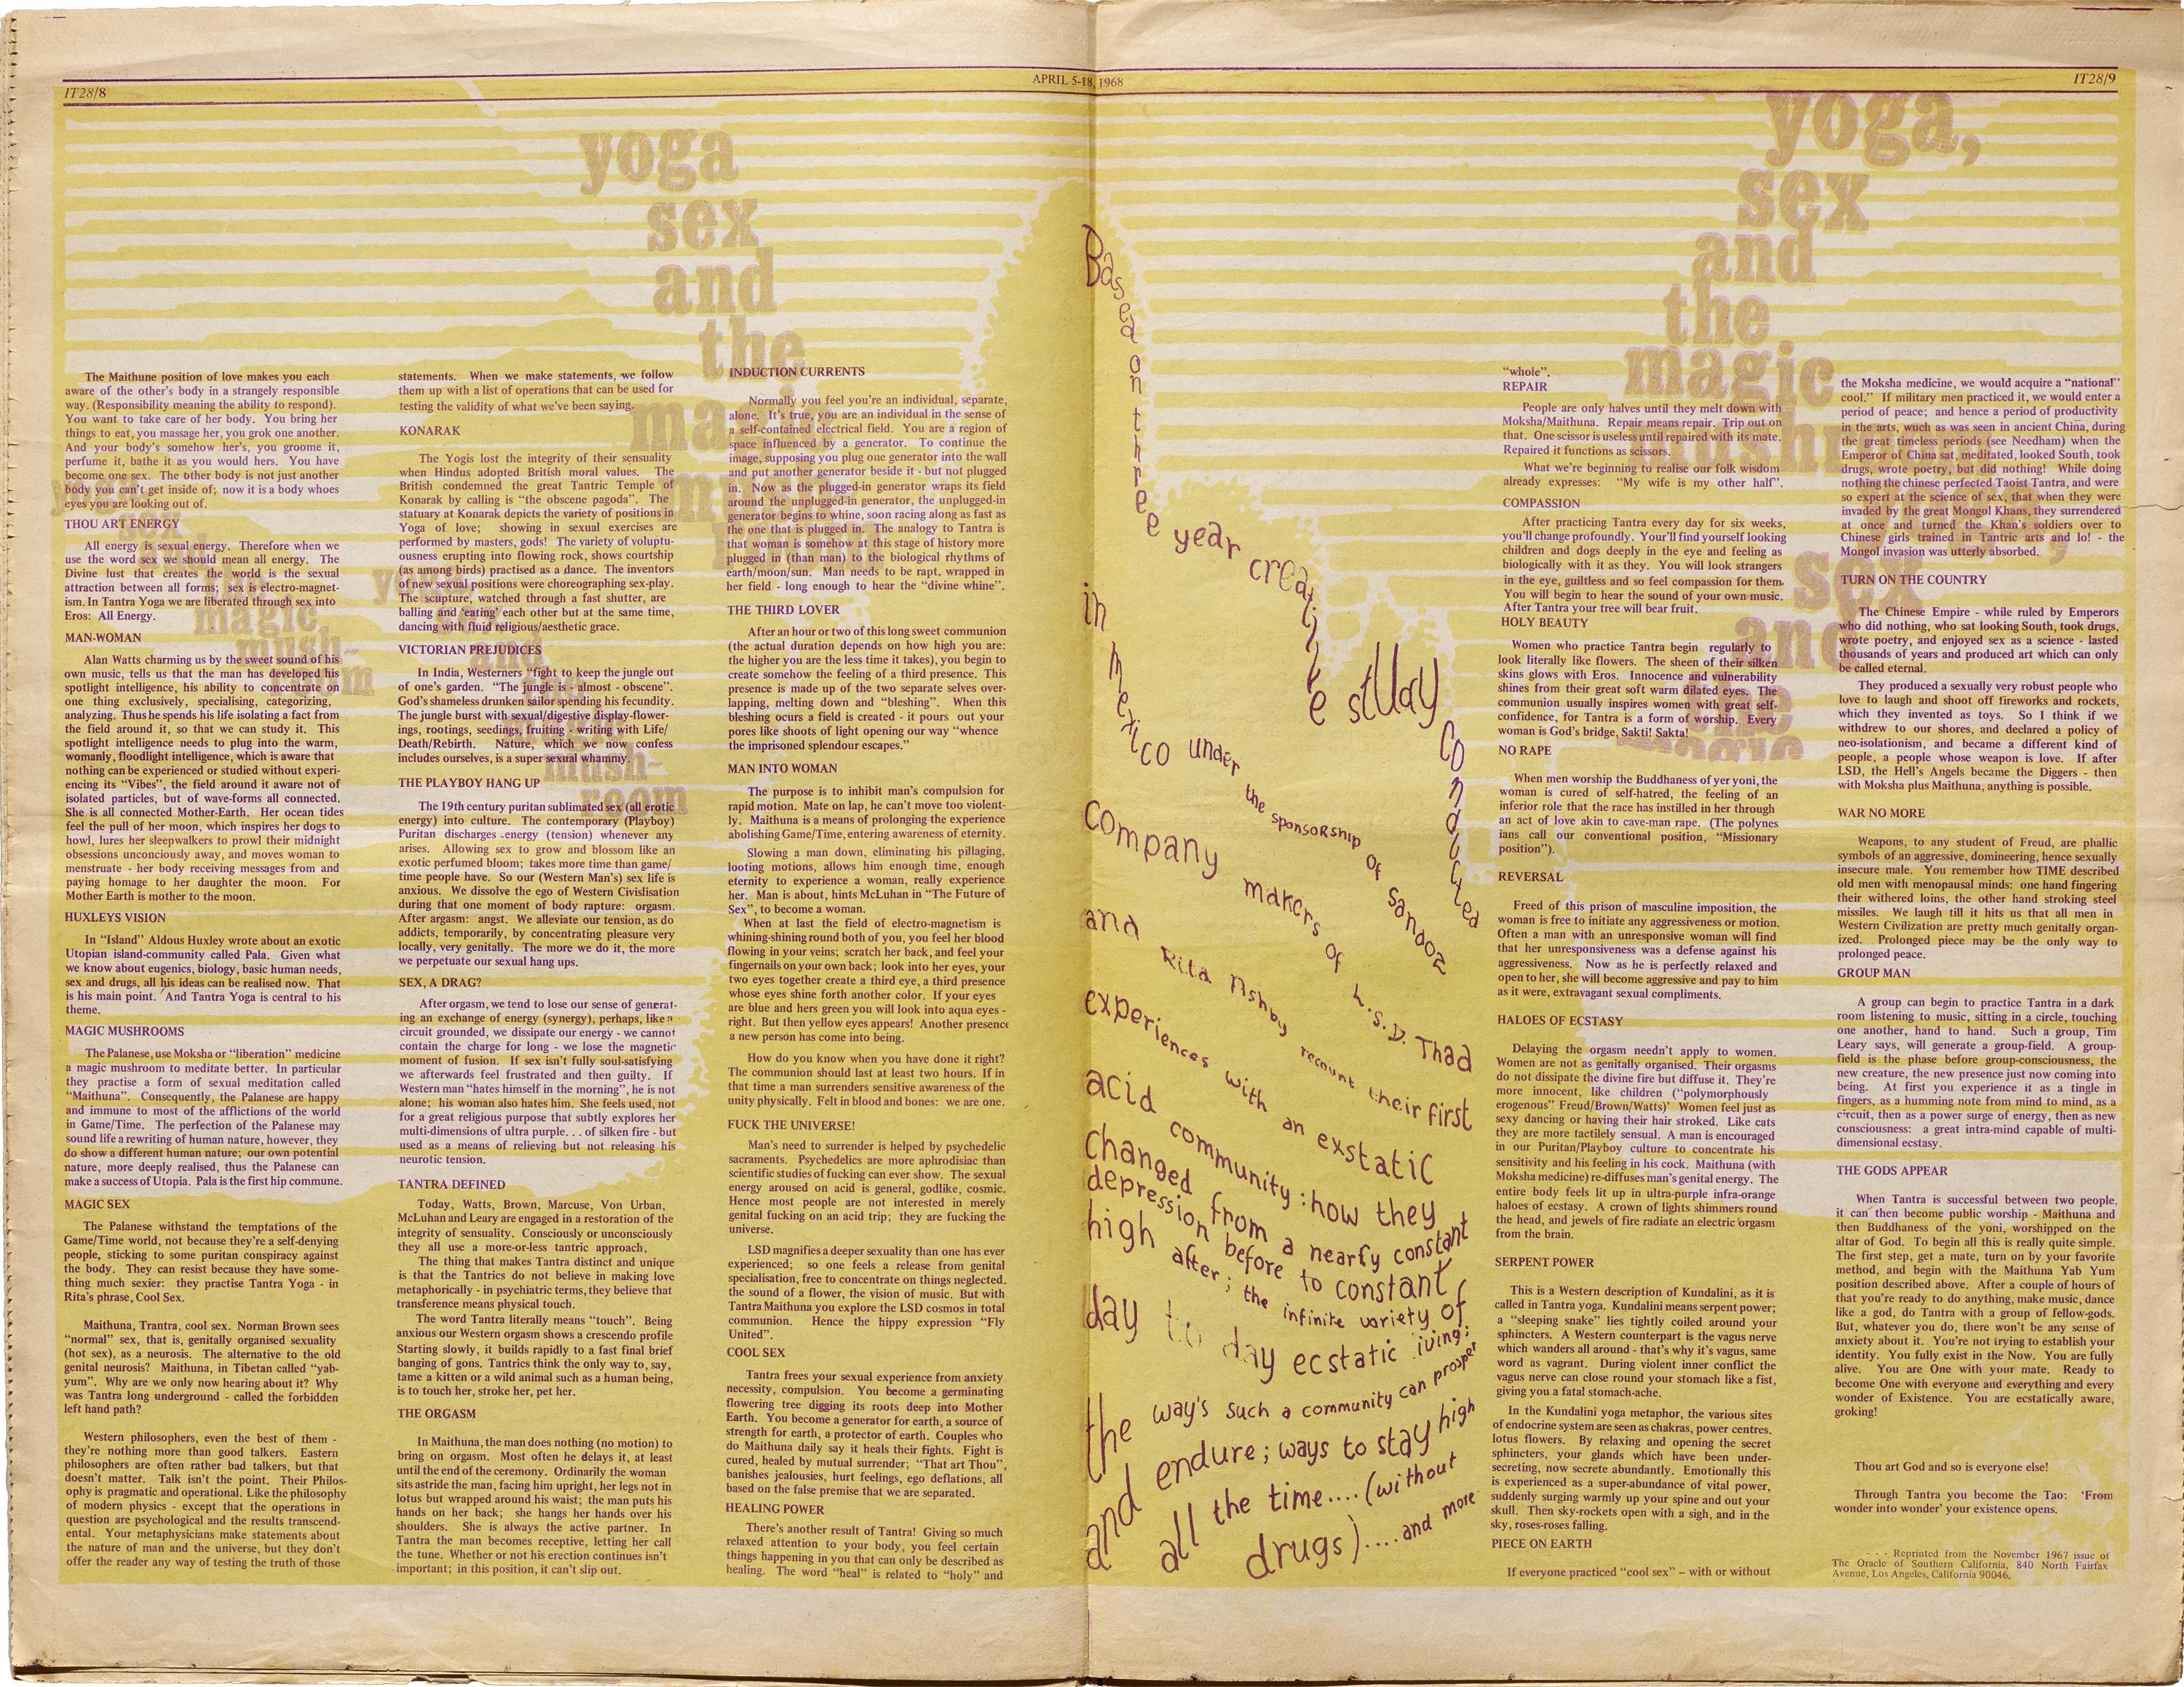 IT28/8
APRIL 5-18, 1968
IT28/9
yoga
sex
and
the
magic
The Maithune position of love makes you each
aware of the other's body in a strangely responsible
way. (Responsibility meaning the ability to respond).
You want to take care of her body. You bring her
things to eat, you massage her, you grok one another.
And your body's somehow her's, you groome it,
perfume it, bathe it as you would hers. You have
become one sex. The other body is not just another
body you can't get inside of; now it is a body whoes
eyes you are looking out of.
THOU ART ENERGY
All energy is sexual energy. Therefore when we
use the word sex we should mean all energy. The
Divine lust that creates the world is the sexual
attraction between all forms; sex is electro-magnet-
ism. In Tantra Yoga we are liberated through sex into
Eros: All Energy.
MAN-WOMAN
Alan Watts charming us by the sweet sound of his
own music, tells us that the man has developed his
spotlight intelligence, his ability to concentrate on
one thing exclusively, specialising, categorizing,
analyzing. Thus he spends his life isolating a fact from
the field around it, so that we can study it. This
spotlight intelligence needs to plug into the warm,
womanly, floodlight intelligence, which is aware that
nothing can be experienced or studied without experi-
encing its "Vibes", the field around it aware not of
isolated particles, but of wave-forms all connected.
She is all connected Mother-Earth. Her ocean tides
feel the pull of her moon, which inspires her dogs to
howl, lures her sleepwalkers to prowl their midnight
obsessions unconciously away, and moves woman to
menstruate - her body receiving messages from and
paying homage to her daughter the moon. For
Mother Earth is mother to the moon.
HUXLEYS VISION
In "Island" Aldous Huxley wrote about an exotic
Utopian island-community called Pala. Given what
we know about eugenics, biology, basic human needs,
sex and drugs, all his ideas can be realised now. That
is his main point. And Tantra Yoga is central to his
theme.
MAGIC MUSHROOMS
The Palanese, use Moksha or "liberation" medicine
a magic mushroom to meditate better. In particular
they practise a form of sexual meditation called
"Maithuna". Consequently, the Palanese are happy
and immune to most of the afflictions of the world
in Game/Time. The perfection of the Palanese may
sound life a rewriting of human nature, however, they
do show a different human nature; our own potential
nature, more deeply realised, thus the Palanese can
make a success of Utopia. Pala is the first hip commune.
MAGIC SEX
The Palanese withstand the temptations of the
Game/Time world, not because they're a self-denying
people, sticking to some puritan conspiracy against
the body. They can resist because they have some-
thing much sexier: they practise Tantra Yoga - in
Rita's phrase, Cool Sex.
Maithuna, Trantra, cool sex. Norman Brown sees
"normal" sex, that is, genitally organised sexuality
(hot sex), as a neurosis. The alternative to the old
genital neurosis? Maithuna, in Tibetan called "yab-
yum". Why are we only now hearing about it? Why
was Tantra long underground - called the forbidden
left hand path?
Western philosophers, even the best of them -
they're nothing more than good talkers. Eastern
philosophers are often rather bad talkers, but that
doesn't matter. Talk isn't the point. Their Philos-
ophy is pragmatic and operational. Like the philosophy
of modern physics - except that the operations in
question are psychological and the results transcend-
ental. Your metaphysicians make statements about
the nature of man and the universe, but they don't
offer the reader any way of testing the truth of those
statements. When we make statements, we follow
them up with a list of operations that can be used for
testing the validity of what we've been saying.
KONARAK
The Yogis lost the integrity of their sensuality
when Hindus adopted British moral values. The
British condemned the great Tantric Temple of
Konarak by calling is "the obscene pagoda". The
statuary at Konarak depicts the variety of positions in
Yoga of love; showing in sexual exercises are
performed by masters, gods! The variety of voluptu-
ousness erupting into flowing rock, shows courtship
(as among birds) practised as a dance. The inventors
of new sexual positions were choreographing sex-play.
The scupture, watched through a fast shutter, are
balling and 'eating' each other but at the same time,
dancing with fluid religious/aesthetic grace.
VICTORIAN PREJUDICES
In India, Westerners "fight to keep the jungle out
of one's garden. "The jungle is - almost - obscene".
God's shameless drunken sailor spending his fecundity.
The jungle burst with sexual/digestive display-flower-
ings, rootings, seedings, fruiting - writing with Life/
Death/Rebirth. Nature, which we now confess
includes ourselves, is a super sexual whammy.
THE PLAYBOY HANG UP
The 19th century puritan sublimated sex (all erotic
energy) into culture. The contemporary (Playboy)
Puritan discharges energy (tension) whenever any
arises. Allowing sex to grow and blossom like an
exotic perfumed bloom; takes more time than game/
time people have. So our (Western Man's) sex life is
anxious. We dissolve the ego of Western Civlisation
during that one moment of body rapture: orgasm.
After argasm: angst. We alleviate our tension, as do
addicts, temporarily, by concentrating pleasure very
locally, very genitally. The more we do it, the more
we perpetuate our sexual hang ups.
SEX, A DRAG?
After orgasm, we tend to lose our sense of generat-
ing an exchange of energy (synergy), perhaps, like a
circuit grounded, we dissipate our energy - we cannot
contain the charge for long - we lose the magnetic
moment of fusion. If sex isn't fully soul-satisfying
we afterwards feel frustrated and then guilty. If
Western man "hates himself in the morning", he is not
alone; his woman also hates him. She feels used, not
for a great religious purpose that subtly explores her
multi-dimensions of ultra purple. . . of silken fire - but
used as a means of relieving but not releasing his
neurotic tension.
TANTRA DEFINED
Today, Watts, Brown, Marcuse, Von Urban,
McLuhan and Leary are engaged in a restoration of the
integrity of sensuality. Consciously or unconsciously
they all use a more-or-less tantric approach,
The thing that makes Tantra distinct and unique
is that the Tantrics do not believe in making love
metaphorically - in psychiatric terms, they believe that
transference means physical touch.
The word Tantra literally means "touch". Being
anxious our Western orgasm shows a crescendo profile
Starting slowly, it builds rapidly to a fast final brief
banging of gons. Tantrics think the only way to, say,
tame a kitten or a wild animal such as a human being,
is to touch her, stroke her, pet her.
THE ORGASM
In Maithuna, the man does nothing (no motion) to
bring on orgasm. Most often he delays it, at least
until the end of the ceremony. Ordinarily the woman
sits astride the man, facing him upright, her legs not in
lotus but wrapped around his waist; the man puts his
hands on her back; she hangs her hands over his
shoulders. She is always the active partner. In
Tantra the man becomes receptive, letting her call
the tune. Whether or not his erection continues isn't
important; in this position, it can't slip out.
INDUCTION CURRENTS
Normally you feel you're an individual, separate,
alone. It's true, you are an individual in the sense of
a self-contained electrical field. You are a region of
space influenced by a generator. To continue the
image, supposing you plug one generator into the wall
and put another generator beside it - but not plugged
in. Now as the plugged-in generator wraps its field
around the unplugged-in generator, the unplugged-in
generator begins to whine, soon racing along as fast as
the one that is plugged in. The analogy to Tantra is
that woman is somehow at this stage of history more
plugged in (than man) to the biological rhythms of
earth/moon/sun. Man needs to be rapt, wrapped in
her field - long enough to hear the "divine whine".
THE THIRD LOVER
After an hour or two of this long sweet communion
(the actual duration depends on how high you are:
the higher you are the less time it takes), you begin to
create somehow the feeling of a third presence. This
presence is made up of the two separate selves over-
lapping, melting down and "bleshing". When this
bleshing ocurs a field is created - it pours out your
pores like shoots of light opening our way "whence
the imprisoned splendour escapes."
MAN INTO WOMAN
The purpose is to inhibit man's compulsion for
rapid motion. Mate on lap, he can't move too violent-
ly. Maithuna is a means of prolonging the experience
abolishing Game/Time, entering awareness of eternity.
Slowing a man down, eliminating his pillaging,
looting motions, allows him enough time, enough
eternity to experience a woman, really experience
her. Man is about, hints McLuhan in "The Future of
Sex", to become a woman.
When at last the field of electro-magnetism is
whining-shining round both of you, you feel her blood
flowing in your veins; scratch her back, and feel your
fingernails on your own back; look into her eyes, your
two eyes together create a third eye, a third presence
whose eyes shine forth another color. If your eyes
are blue and hers green you will look into aqua eyes -
right. But then yellow eyes appears! Another presence
a new person has come into being.
How do you know when you have done it right?
The communion should last at least two hours. If in
that time a man surrenders sensitive awareness of the
unity physically. Felt in blood and bones: we are one.
FUCK THE UNIVERSE!
Man's need to surrender is helped by psychedelic
sacraments. Psychedelics are more aphrodisiac than
scientific studies of fucking can ever show. The sexual
energy aroused on acid is general, godlike, cosmic.
Hence most people are not interested in merely
genital fucking on an acid trip; they are fucking the
universe.
LSD magnifies a deeper sexuality than one has ever
experienced; so one feels a release from genital
specialisation, free to concentrate on things neglected.
the sound of a flower, the vision of music. But with
Tantra Maithuna you explore the LSD cosmos in total
communion. Hence the hippy expression "Fly
United".
COOL SEX
Tantra frees your sexual experience from anxiety
necessity, compulsion. You become a germinating
flowering tree digging its roots deep into Mother
Earth. You become a generator for earth, a source of
strength for earth, a protector of earth. Couples who
do Maithuna daily say it heals their fights. Fight is
cured, healed by mutual surrender; "That art Thou",
banishes jealousies, hurt feelings, ego deflations, all
based on the false premise that we are separated.
HEALING POWER
There's another result of Tantra! Giving so much
relaxed attention to your body, you feel certain
things happening in you that can only be described as
healing. The word "heal" is related to "holy" and
yoga
sex
and
the
magic
mush-
room
Based on three year creative study conducted
in mexico under the sponsorship of Sandoz
company makers of L.S.D. Thad
and Rita Ashby recount their first
experiences with an exstatic
acid community : how they
changed from a nearly constant
depression before to constant
high after; the infinite variety of
day to day ecstatic living;
the way's such a community can prosper
and endure; ways to stay high
all the time.... (without
drugs)....and more
yoga,
sex
and
the
magic
mushr
sex
and
the
magic
"whole".
REPAIR
People are only halves until they melt down with
Moksha/Maithuna. Repair means repair. Trip out on
that. One scissor is useless until repaired with its mate.
Repaired it functions as scissors.
What we're beginning to realise our folk wisdom
already expresses: "My wife is my other half".
COMPASSION
After practicing Tantra every day for six weeks,
you'll change profoundly. Your'll find yourself looking
children and dogs deeply in the eye and feeling as
biologically with it as they. You will look strangers
in the eye, guiltless and so feel compassion for them.
You will begin to hear the sound of your own music.
After Tantra your tree will bear fruit.
HOLY BEAUTY
Women who practice Tantra begin regularly to
look literally like flowers. The sheen of their silken
skins glows with Eros. Innocence and vulnerability
shines from their great soft warm dilated eyes. The
communion usually inspires women with great self-
confidence, for Tantra is a form of worship. Every
woman is God's bridge, Sakti! Sakta!
NO RAPE
When men worship the Buddhaness of yer yoni, the
woman is cured of self-hatred, the feeling of an
inferior role that the race has instilled in her through
an act of love akin to cave-man rape. (The polynes
ians call our conventional position, "Missionary
position").
REVERSAL
Freed of this prison of masculine imposition, the
woman is free to initiate any aggressiveness or motion.
Often a man with an unresponsive woman will find
that her unresponsiveness was a defense against his
aggressiveness. Now as he is perfectly relaxed and
open to her, she will become aggressive and pay to him
as it were, extravagant sexual compliments.
HALOES OF ECSTASY
Delaying the orgasm needn't apply to women.
Women are not as genitally organised. Their orgasms
do not dissipate the divine fire but diffuse it. They're
more innocent, like children ("polymorphously
erogenous" Freud/Brown/Watts)' Women feel just as
sexy dancing or having their hair stroked. Like cats
they are more tactilely sensual. A man is encouraged
in our Puritan/Playboy culture to concentrate his
sensitivity and his feeling in his cock. Maithuna (with
Moksha medicine) re-diffuses man's genital energy. The
entire body feels lit up in ultra-purple infra-orange
haloes of ecstasy. A crown of lights shimmers round
the head, and jewels of fire radiate an electric orgasm
from the brain.
SERPENT POWER
This is a Western description of Kundalini, as it is
called in Tantra yoga. Kundalini means serpent power;
a "sleeping snake" lies tightly coiled around your
sphincters. A Western counterpart is the vagus nerve
which wanders all around - that's why it's vagus, same
word as vagrant. During violent inner conflict the
vagus nerve can close round your stomach like a fist,
giving you a fatal stomach-ache.
In the Kundalini yoga metaphor, the various sites
of endocrine system are seen as chakras, power centres.
lotus flowers. By relaxing and opening the secret
sphincters, your glands which have been under-
secreting, now secrete abundantly. Emotionally this
is experienced as a super-abundance of vital power,
suddenly surging warmly up your spine and out your
skull. Then sky-rockets open with a sigh, and in the
sky, roses-roses falling.
PIECE ON EARTH
If everyone practiced "cool sex" – with or without
the Moksha medicine, we would acquire a "national"
cool." If military men practiced it, we would enter a
period of peace; and hence a period of productivity
in the arts, wuch as was seen in ancient China, during
the great timeless periods (see Needham) when the
Emperor of China sat, meditated, looked South, took
drugs, wrote poetry, but did nothing! While doing
nothing the chinese perfected Taoist Tantra, and were
so expert at the science of sex, that when they were
invaded by the great Mongol Khans, they surrendered
at once and turned the Khan's soldiers over to
Chinese girls trained in Tantric arts and lo! - the
Mongol invasion was utterly absorbed.
TURN ON THE COUNTRY
The Chinese Empire - while ruled by Emperors
who did nothing, who sat looking South, took drugs,
wrote poetry, and enjoyed sex as a science - lasted
thousands of years and produced art which can only
be called eternal.
They produced a sexually very robust people who
love to laugh and shoot off fireworks and rockets,
which they invented as toys. So I think if we
withdrew to our shores, and declared a policy of
neo-isolationism, and became a different kind of
people, a people whose weapon is love. If after
LSD, the Hell's Angels became the Diggers - then
with Moksha plus Maithuna, anything is possible.
WAR NO MORE
Weapons, to any student of Freud, are phallic
symbols of an aggressive, domineering, hence sexually
insecure male. You remember how TIME described
old men with menopausal minds: one hand fingering
their withered loins, the other hand stroking steel
missiles. We laugh till it hits us that all men in
Western Civilization are pretty much genitally organ-
ized. Prolonged piece may be the only way to
prolonged peace.
GROUP MAN
A group can begin to practice Tantra in a dark
room listening to music, sitting in a circle, touching
one another, hand to hand. Such a group, Tim
Leary says, will generate a group-field. A group-
field is the phase before group-consciousness, the
new creature, the new presence just now coming into
being. At first you experience it as a tingle in
fingers, as a humming note from mind to mind, as a
circuit, then as a power surge of energy, then as new
consciousness: a great intra-mind capable of multi-
dimensional ecstasy.
THE GODS APPEAR
When Tantra is successful between two people,
it can then become public worship - Maithuna and
then Buddhaness of the yoni, worshipped on the
altar of God. To begin all this is really quite simple.
The first step, get a mate, turn on by your favorite
method, and begin with the Maithuna Yab Yum
position described above. After a couple of hours of
that you're ready to do anything, make music, dance
like a god, do Tantra with a group of fellow-gods.
But, whatever you do, there won't be any sense of
anxiety about it. You're not trying to establish your
identity. You fully exist in the Now. You are fully
alive. You are One with your mate. Ready to
become One with everyone and everything and every
wonder of Existence. You are ecstatically aware,
groking!
Thou art God and so is everyone else!
Through Tantra you become the Tao: 'From
wonder into wonder' your existence opens.
- - - Reprinted from the November 1967 issue of
The Oracle of Southern California, 840 North Fairfax
Avenue, Los Angeles, California 90046.